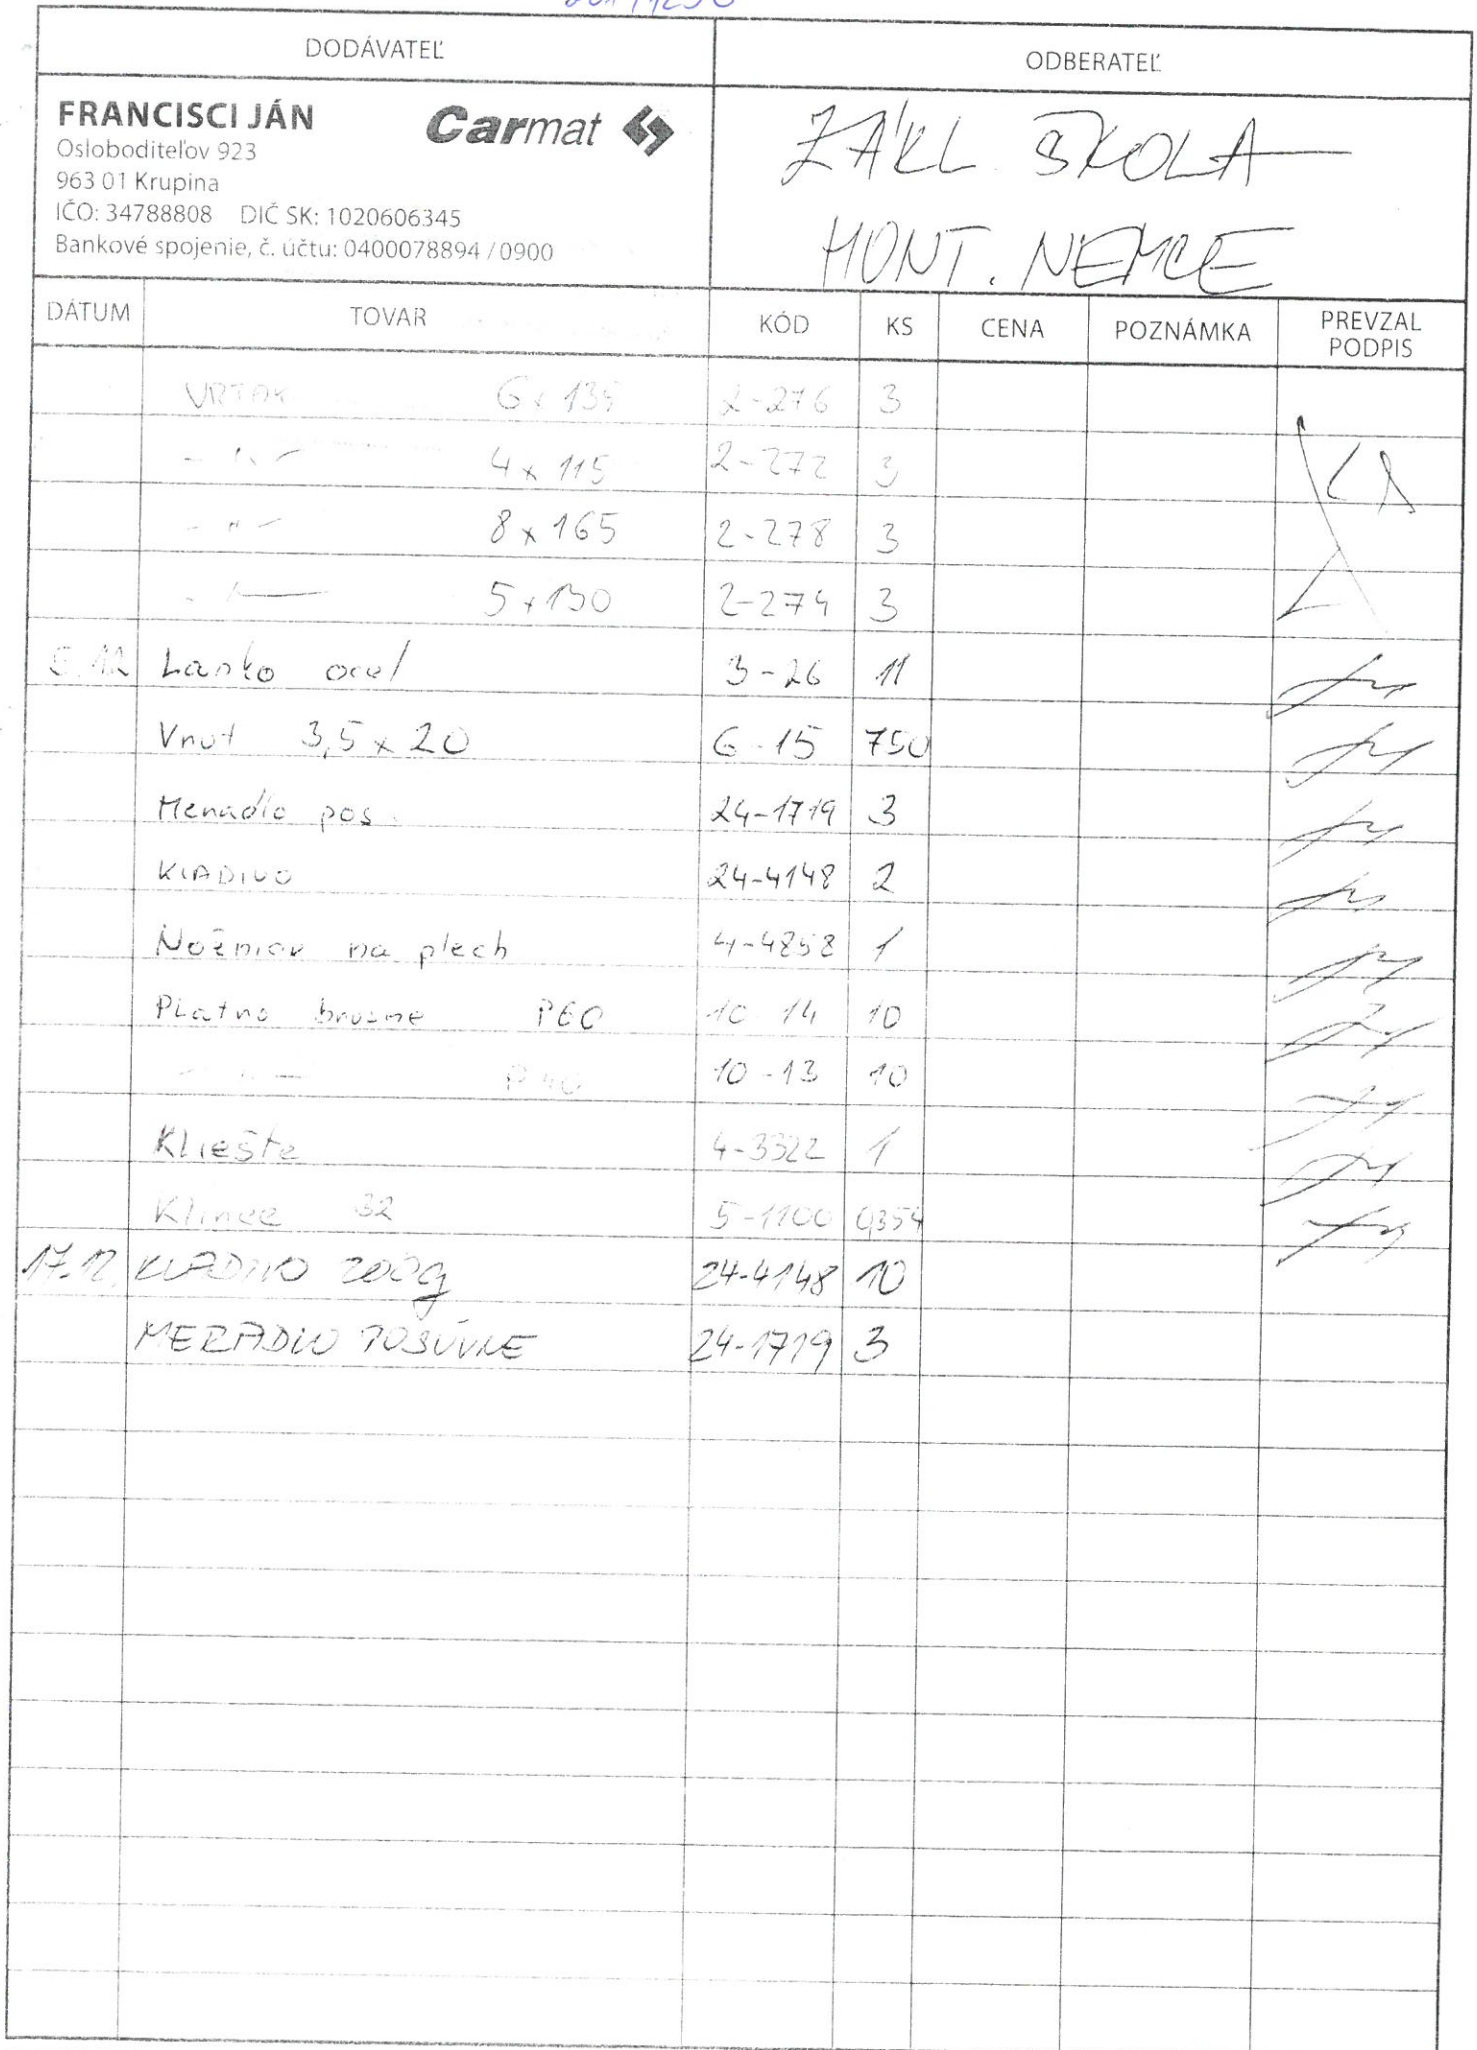 DODÁVATEĽ ODBERATEĽ
FRANCISCI JÁN Carmat
Osloboditeľov 923
963 01 Krupina
IČO: 34788808 DIČ SK: 1020606345
Bankové spojenie, č. účtu: 0400078894 / 0900
ZÁKL. ŠKOLA
HONT. NEMCE
DÁTUM TOVAR KÓD KS CENA POZNÁMKA PREVZAL PODPIS
VRTAK 6 x 135 2-276 3
- " - 4 x 115 2-272 3
- " - 8 x 165 2-278 3
- " - 5 x 130 2-274 3
5.12 Lanko ocel 3-26 11
Vnut 3,5 x 20 6-15 750
Meradlo pos. 24-1719 3
KLADIVO 24-4148 2
Nožnice na plech 4-4858 1
Platno brusne P60 10-14 10
- " - P40 10-13 10
Kliešte 4-3322 1
Klince 32 5-1100 0,354
17.12. KLADIVO 200g 24-4148 10
MERADLO POSUVNE 24-1719 3